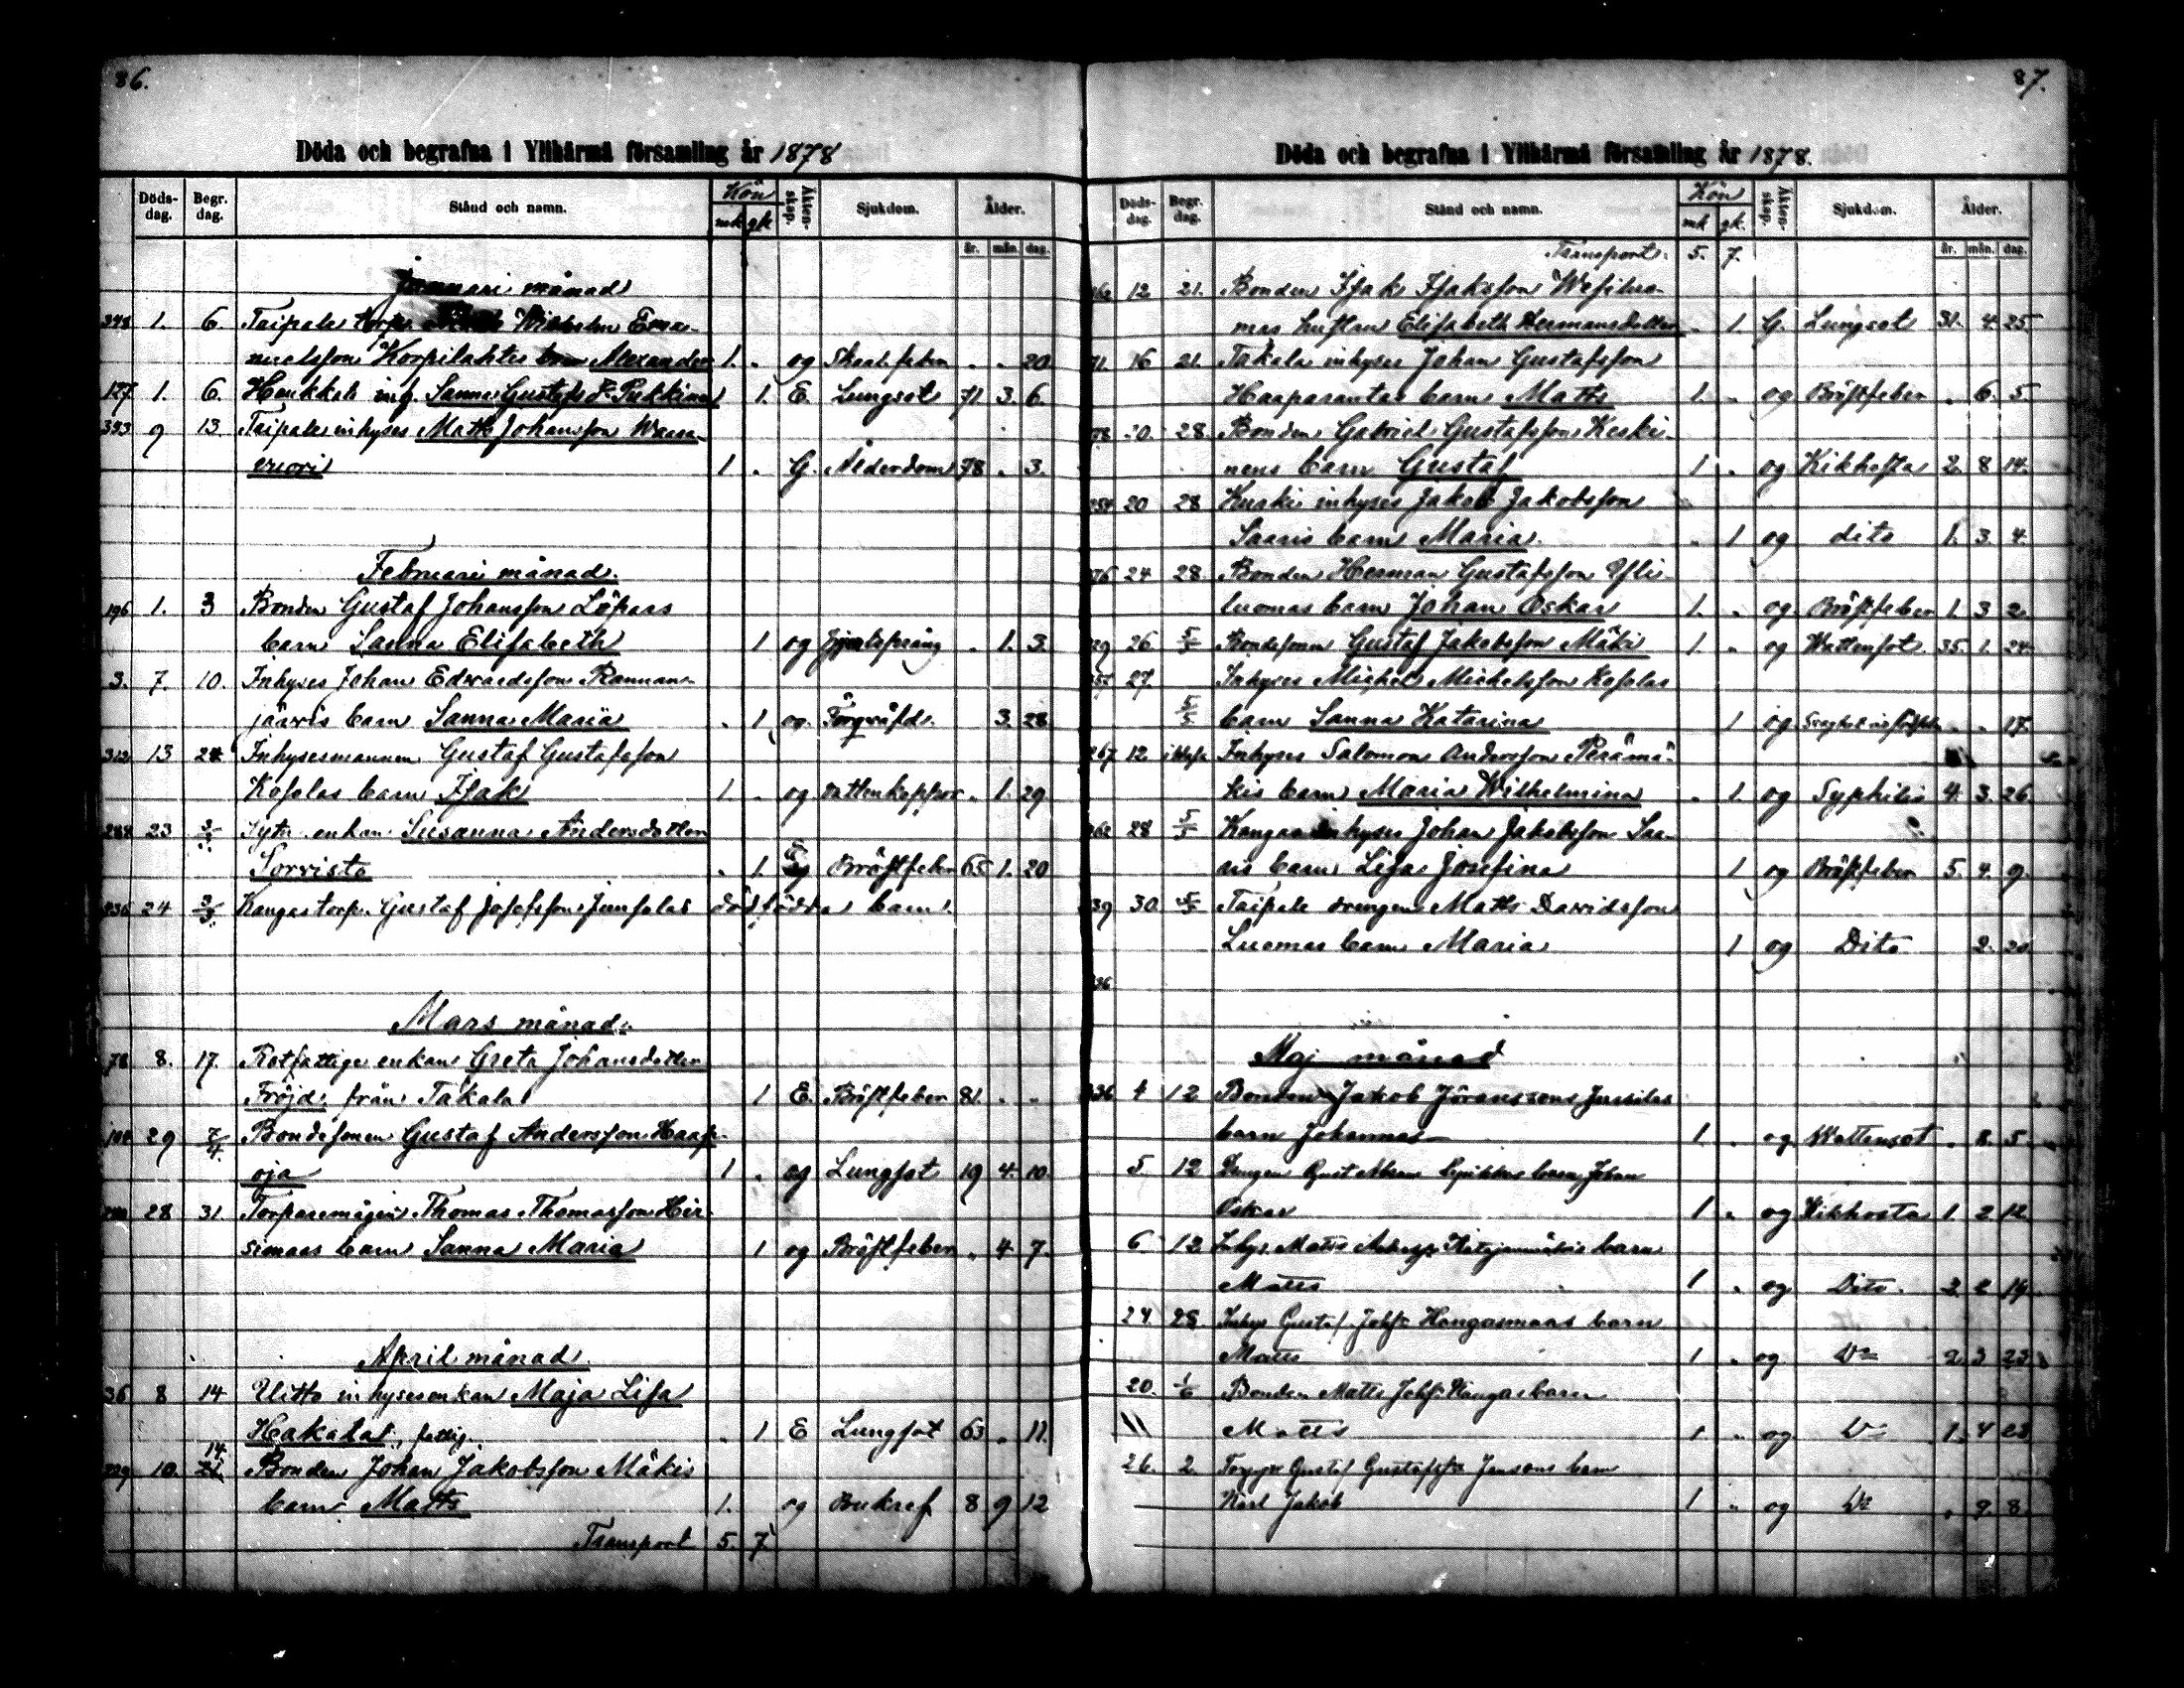 86.
Döda och begrafna i Ylihärmä församling år 1878
Döds-dag. Begr. dag. Stånd och namn. Kön mk gk Äkten-skap. Sjukdom. Ålder.
år. mån. dag.
Januari månad
348 1. 6. Taipale torp. Wilhelm Ema-
nuelsson Korpilahtis barn Alexander 1. " og 20.
127. 1. 6. Haukkala inh. Sanna Gustafsdr Pukkinen 1. E. Lungsot 71. 3. 6.
353 9 13 Taipale inhyses Matts Johansson Waara-
vuori 1 " G. Ålderdom 78 " 3.
Februari månad.
196 1. 3 Bonden Gustaf Johansson Löpars
barn Sanna Elisabeth 1 og " 1. 3.
3. 7. 10. Inhyses Johan Edwardsson Rannan-
järvis barn Sanna Maria " 1 og 3. 28
312 13 24 Inhysesmannen Gustaf Gustafsson
Kosolas barn Isak 1. " og Vattenkoppor " 1. 29
288 23 3/3 Sytn. enkan Susanna Andersdotter
Sorvisto " 1. E Bröstfeber 65 1. 20
236 24 3/3 Kangas torp. Gustaf Josefsson Junsolas dödfödda barn.
Mars månad.
78 8. 17. Rotfattige enkan Greta Johansdotter
Fröjd, från Takala 1 E. Bröstfeber 81. " "
29 7/4 Bondesonen Gustaf Andersson Haap-
oja 1 " og Lungsot 19 4. 10
28 31. Torparemågen Thomas Thomasson Hir-
simaas barn Sanna Maria 1 og Bröstfeber " 4 7.
April månad.
36 8 14 Uitto inhysesenkan Maja Lisa
Hakala, fattig. " 1 E Lungsot 63 " 11.
229 10. 14. Bonden Johan Jakobsson Mäkis
barn Matts 1. og Bukref 8 9 12
Transport 5. 7.
87.
Döda och begrafna i Ylihärmä församling år 1878.
Döds-dag. Begr. dag. Stånd och namn. Kön mk gk. Äkten-skap. Sjukdom. Ålder.
år. mån. dag.
Transport. 5. 7.
12 21. Bonden Isak Isaksson
hustru Elisabeth Hermansdotter " 1. G. Lungsot 31. 4 25
16 21. Takala inhyses Johan Gustafsson
Haaparantas barn Matts 1. " og Bröstfeber " 6. 5
20. 28. Bonden Gabriel Gustafsson Keski-
nens barn Gustaf 1 " og Kikhosta 2. 8 14.
254 20 28 Kuski inhyses Jakob Jakobsson
Saaris barn Maria. " 1 og dito 1. 3. 4.
24 28 Bonden Herman Gustafsson Yli-
luomas barn Johan Oskar 1. " og. Bröstfeber 1. 3 2.
229 26 5/5 Bondesonen Gustaf Jakobsson Mäki 1. " og Wattensot 35. 1. 24
27. Inhyses Michel Michelsson Kosolas
5/5 barn Sanna Katarina 1 og " " 17.
267 12 Inhyses Salomon Andersson Perämä-
kis barn Maria Wilhelmina " 1. og Syphilis 4. 3. 26.
28 5/5 Kangas inhyses Johan Jakobsson Saa-
ris barn Lisa Josefina 1 og Bröstfeber 5. 4. 9.
39 30. 5/5 Taipale drengen Matts Davidsson
Luomas barn Maria 1 og Dito 2. 20
Maj månad
336 4 12 Bonden Jakob Jöranssons Jussilas
barn Johannes 1 " og Wattensot " 8. 5.
5. 12 Drengen barn Johan
Oskar 1 " og Kikhosta 1. 2 12
6 12 Inhys. Matts barn
Matts 1 " og Dito. 2 14
24 25 Inhys Gustaf Johss Hangasmaas barn
Matts 1 " og Do 2. 3 23
20. 1/6 Bonden Matts Johss Kangas barn
" Matts 1 " og Do 1. 4 28
26. 2. Gustaf Gustafss Jensons barn
Karl Jakob 1 " og Do " 9. 8.